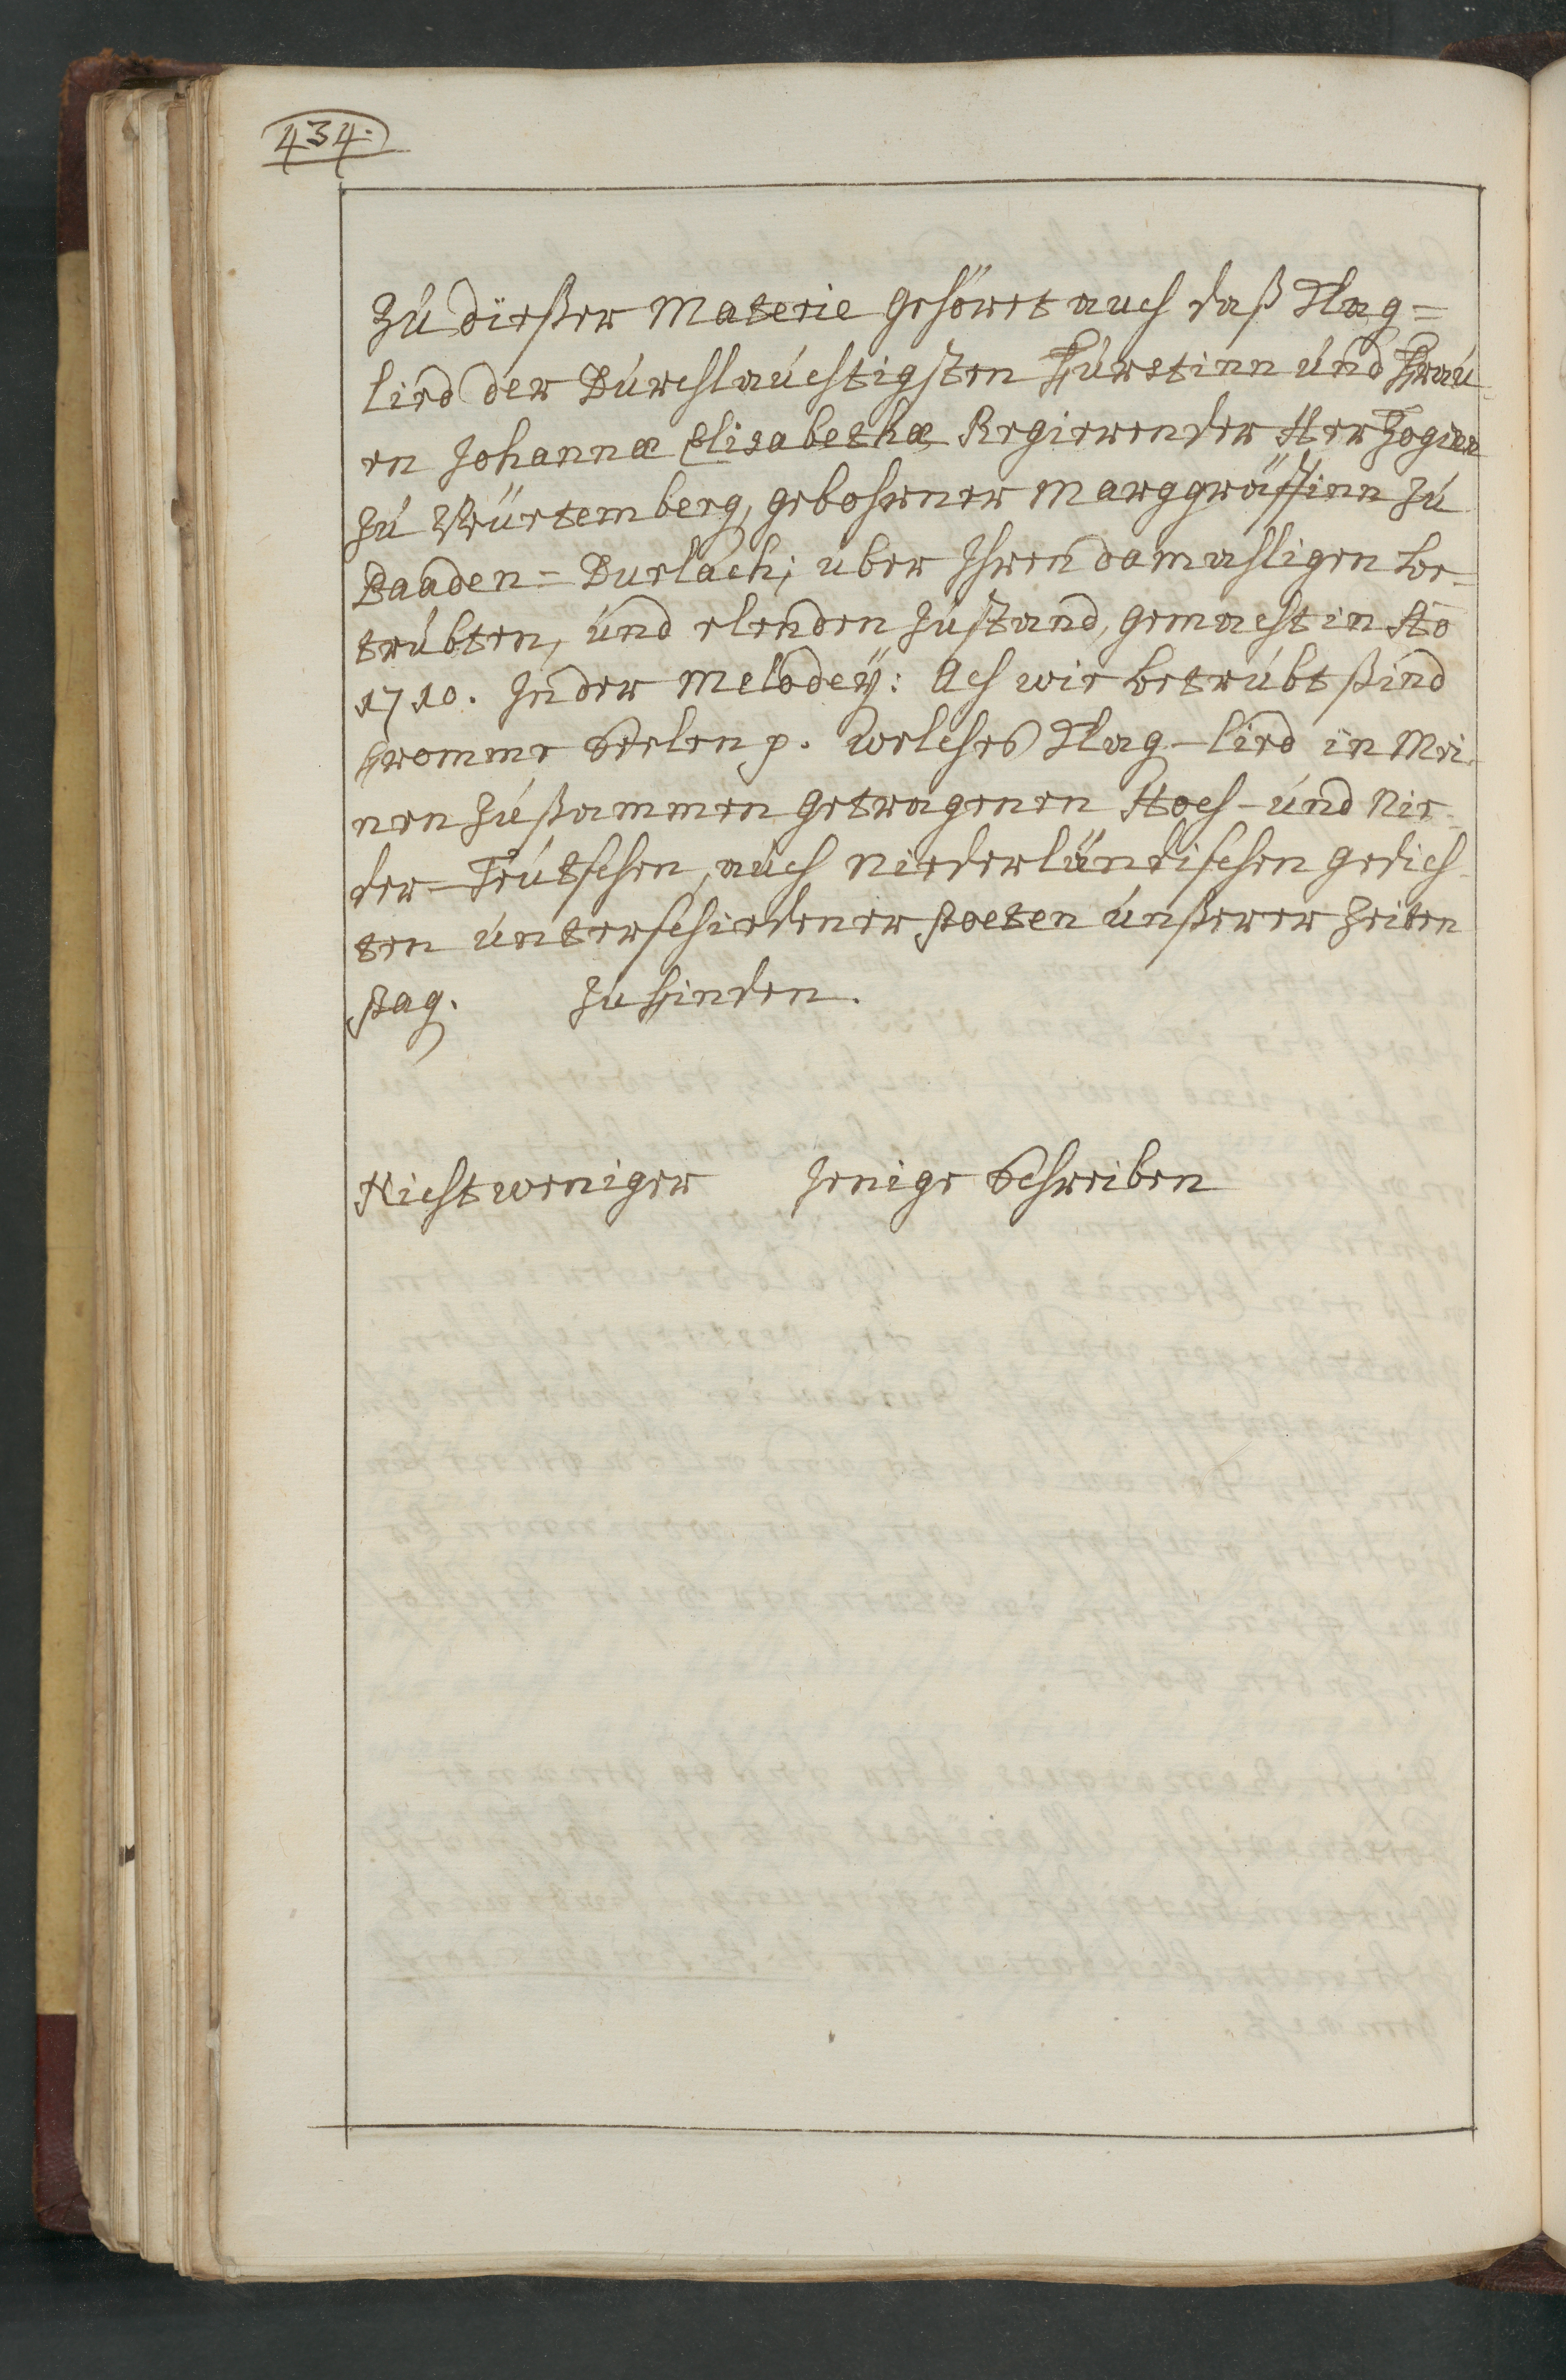 434.
Zu dießer Materie gehöret auch daß Klag=
lied der Durchlauchtigsten Fürstinn und Frau-
en Johannæ Elisabethæ Regierender Herzoginn
zu Würtemberg, gebohrner Marggräffinn zu
Baaden=Durlach; uber Ihren damahligen be-
trubten, und elenden Zustand, gemacht in Ao
1710. In der Melodeÿ: Ach wie betrubt sind
fromme Seelen p. welches Klag-lied in Mei-
nen zusammen getragenen Hoch- und Nie-
der-Teutschen, auch Niederländischen gedich-
ten unterschiedener Poeten unßerer Zeiten
pag. zu finden.
Nicht weniger jenige Schreiben